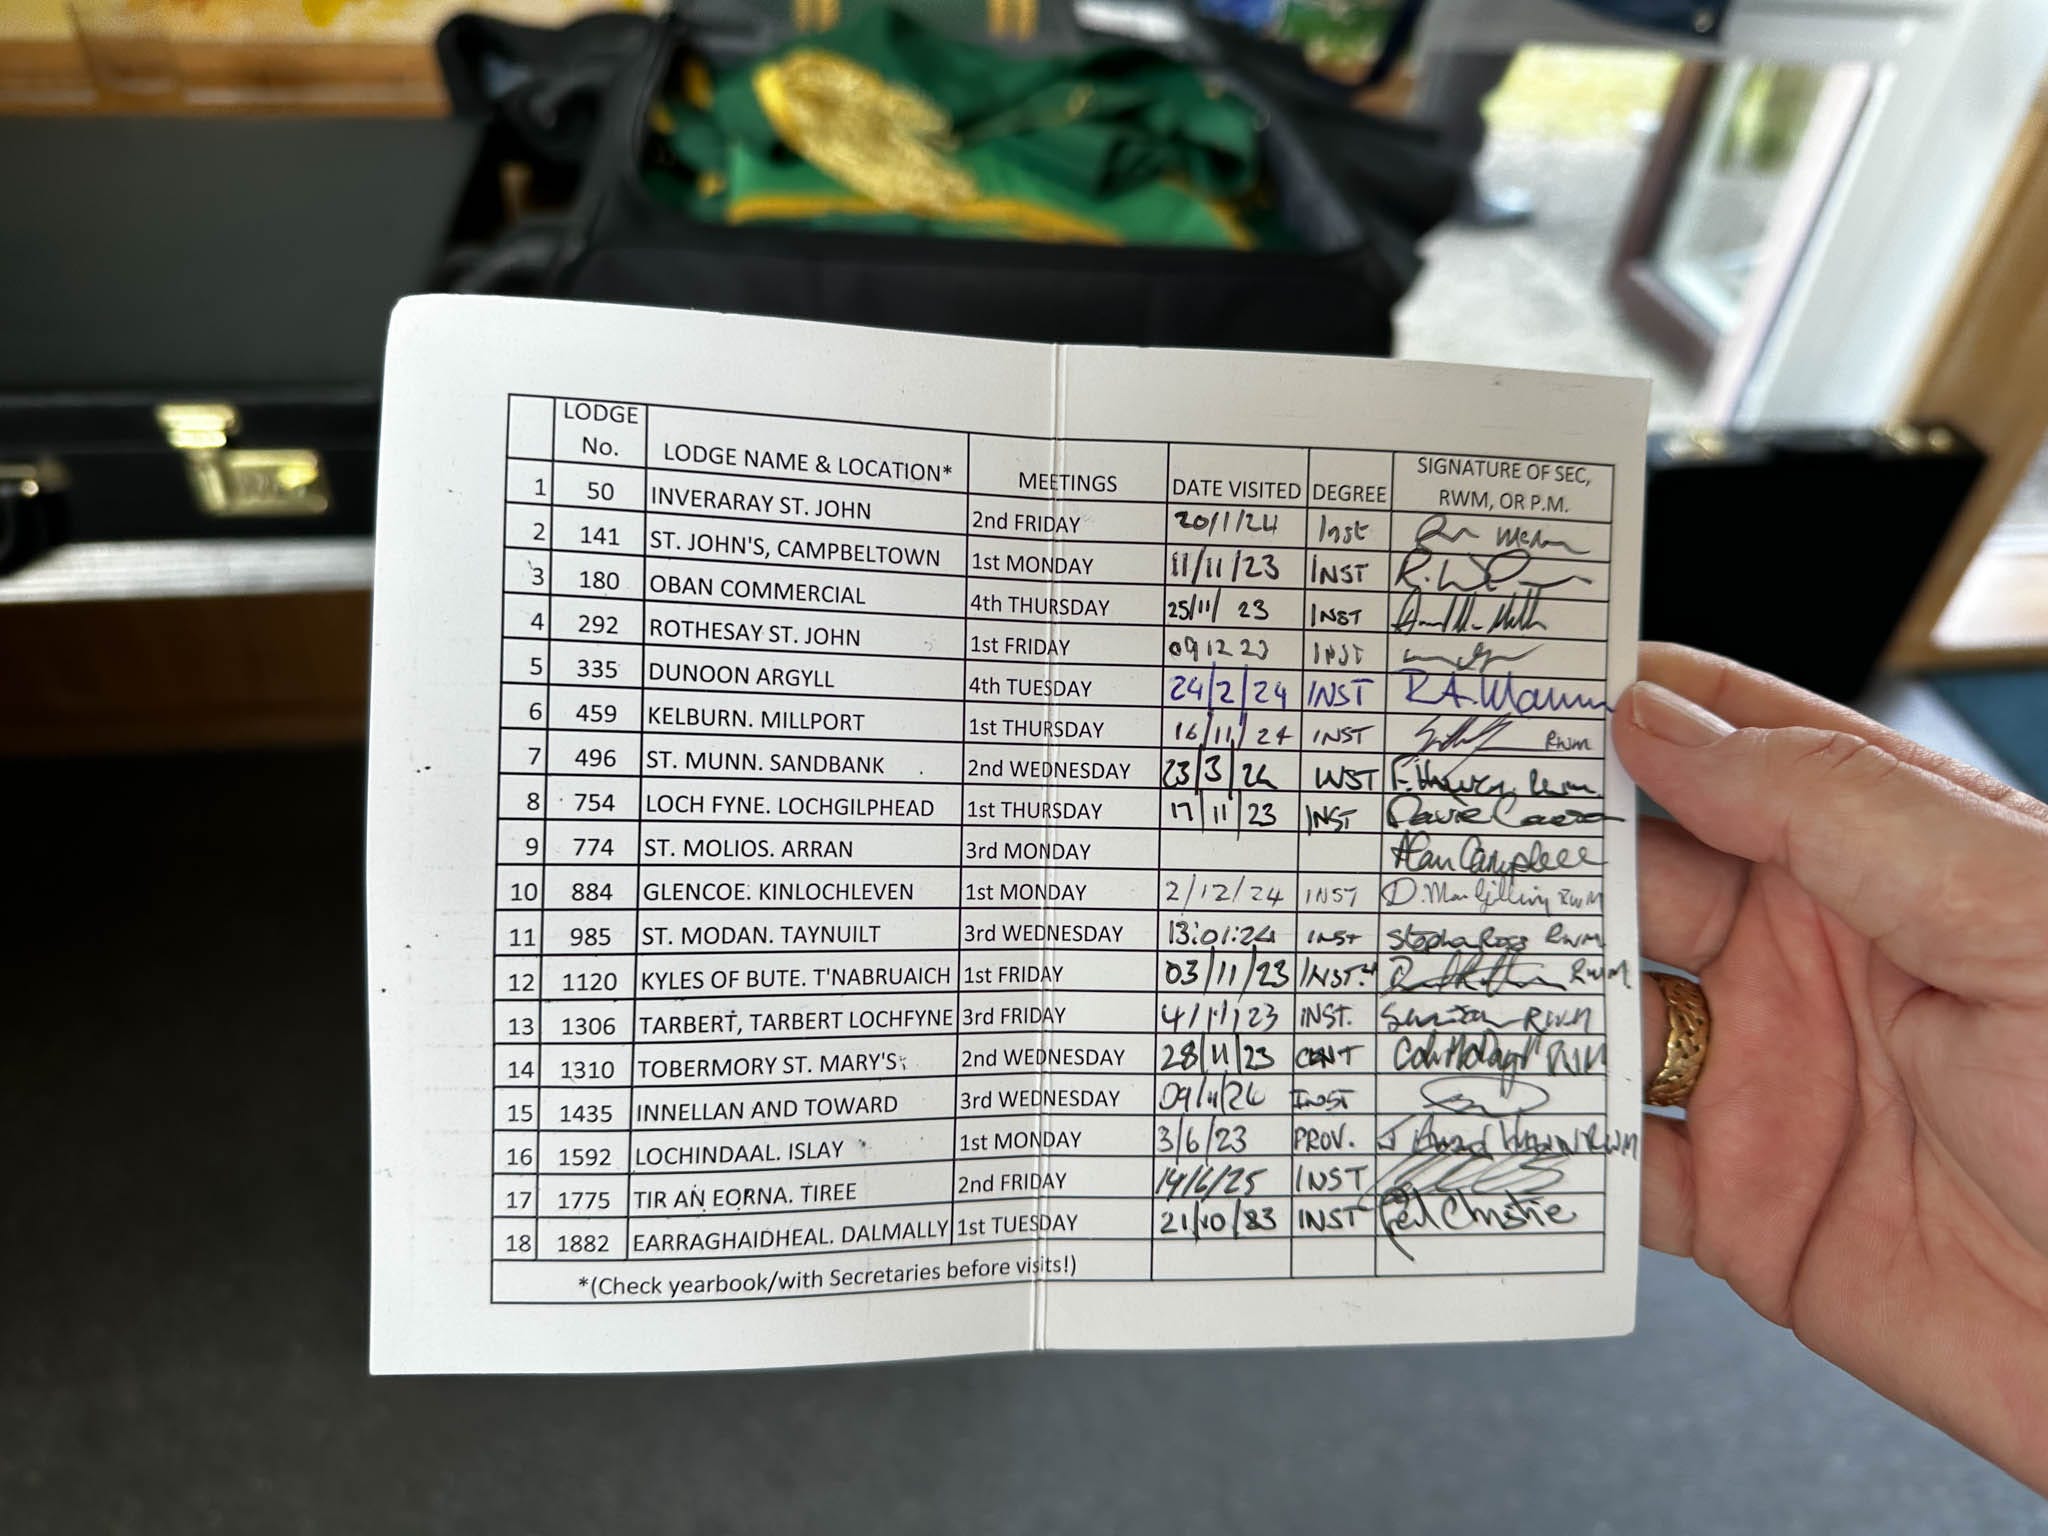 LODGE No. LODGE NAME & LOCATION* MEETINGS DATE VISITED DEGREE SIGNATURE OF SEC, RWM, OR P.M.
1 50 INVERARAY ST. JOHN 2nd FRIDAY 20/1/24 Inst
2 141 ST. JOHN'S, CAMPBELTOWN 1st MONDAY 11/11/23 INST
3 180 OBAN COMMERCIAL 4th THURSDAY 25/11/23 INST
4 292 ROTHESAY ST. JOHN 1st FRIDAY 09 12 23 INST
5 335 DUNOON ARGYLL 4th TUESDAY 24/2/24 INST
6 459 KELBURN. MILLPORT 1st THURSDAY 16/11/24 INST RWM
7 496 ST. MUNN. SANDBANK 2nd WEDNESDAY 23/3/24 INST
8 754 LOCH FYNE. LOCHGILPHEAD 1st THURSDAY 17/11/23 INST
9 774 ST. MOLIOS. ARRAN 3rd MONDAY Alan Campbell
10 884 GLENCOE. KINLOCHLEVEN 1st MONDAY 2/12/24 INST RWM
11 985 ST. MODAN. TAYNUILT 3rd WEDNESDAY 13:01:24 INST Stephen Ross RWM
12 1120 KYLES OF BUTE. T'NABRUAICH 1st FRIDAY 03/11/23 RWM
13 1306 TARBERT, TARBERT LOCHFYNE 3rd FRIDAY 4/11/23 INST. RWM
14 1310 TOBERMORY ST. MARY'S 2nd WEDNESDAY 28/11/23 CENT RWM
15 1435 INNELLAN AND TOWARD 3rd WEDNESDAY 09/11/24 INST
16 1592 LOCHINDAAL. ISLAY 1st MONDAY 3/6/23 PROV. RWM
17 1775 TIR AN EORNA. TIREE 2nd FRIDAY 14/6/25 INST
18 1882 EARRAGHAIDHEAL. DALMALLY 1st TUESDAY 21/10/23 INST Christie
*(Check yearbook/with Secretaries before visits!)